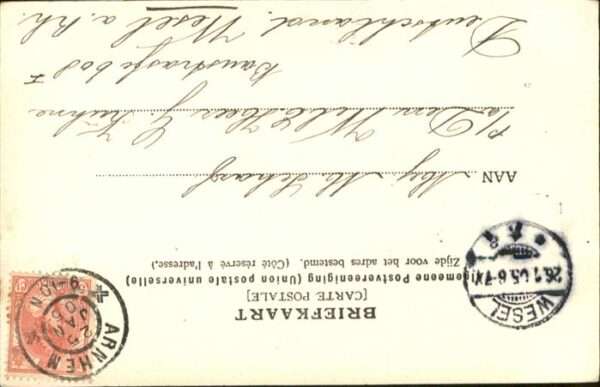 BRIEFKAART
[CARTE POSTALE]
Algemeene Postvereeniging (Union postale universelle)
Zijde voor het adres bestemd. (Côté réservé à l'adresse.)
AAN Mej. M. Scharf
p/a Den Weled. Heer G. Kühne
Baustrasse
Wesel a. Rh.
Deutschland.
ARNHEM
JAN
WESEL
26.1.05.6-7